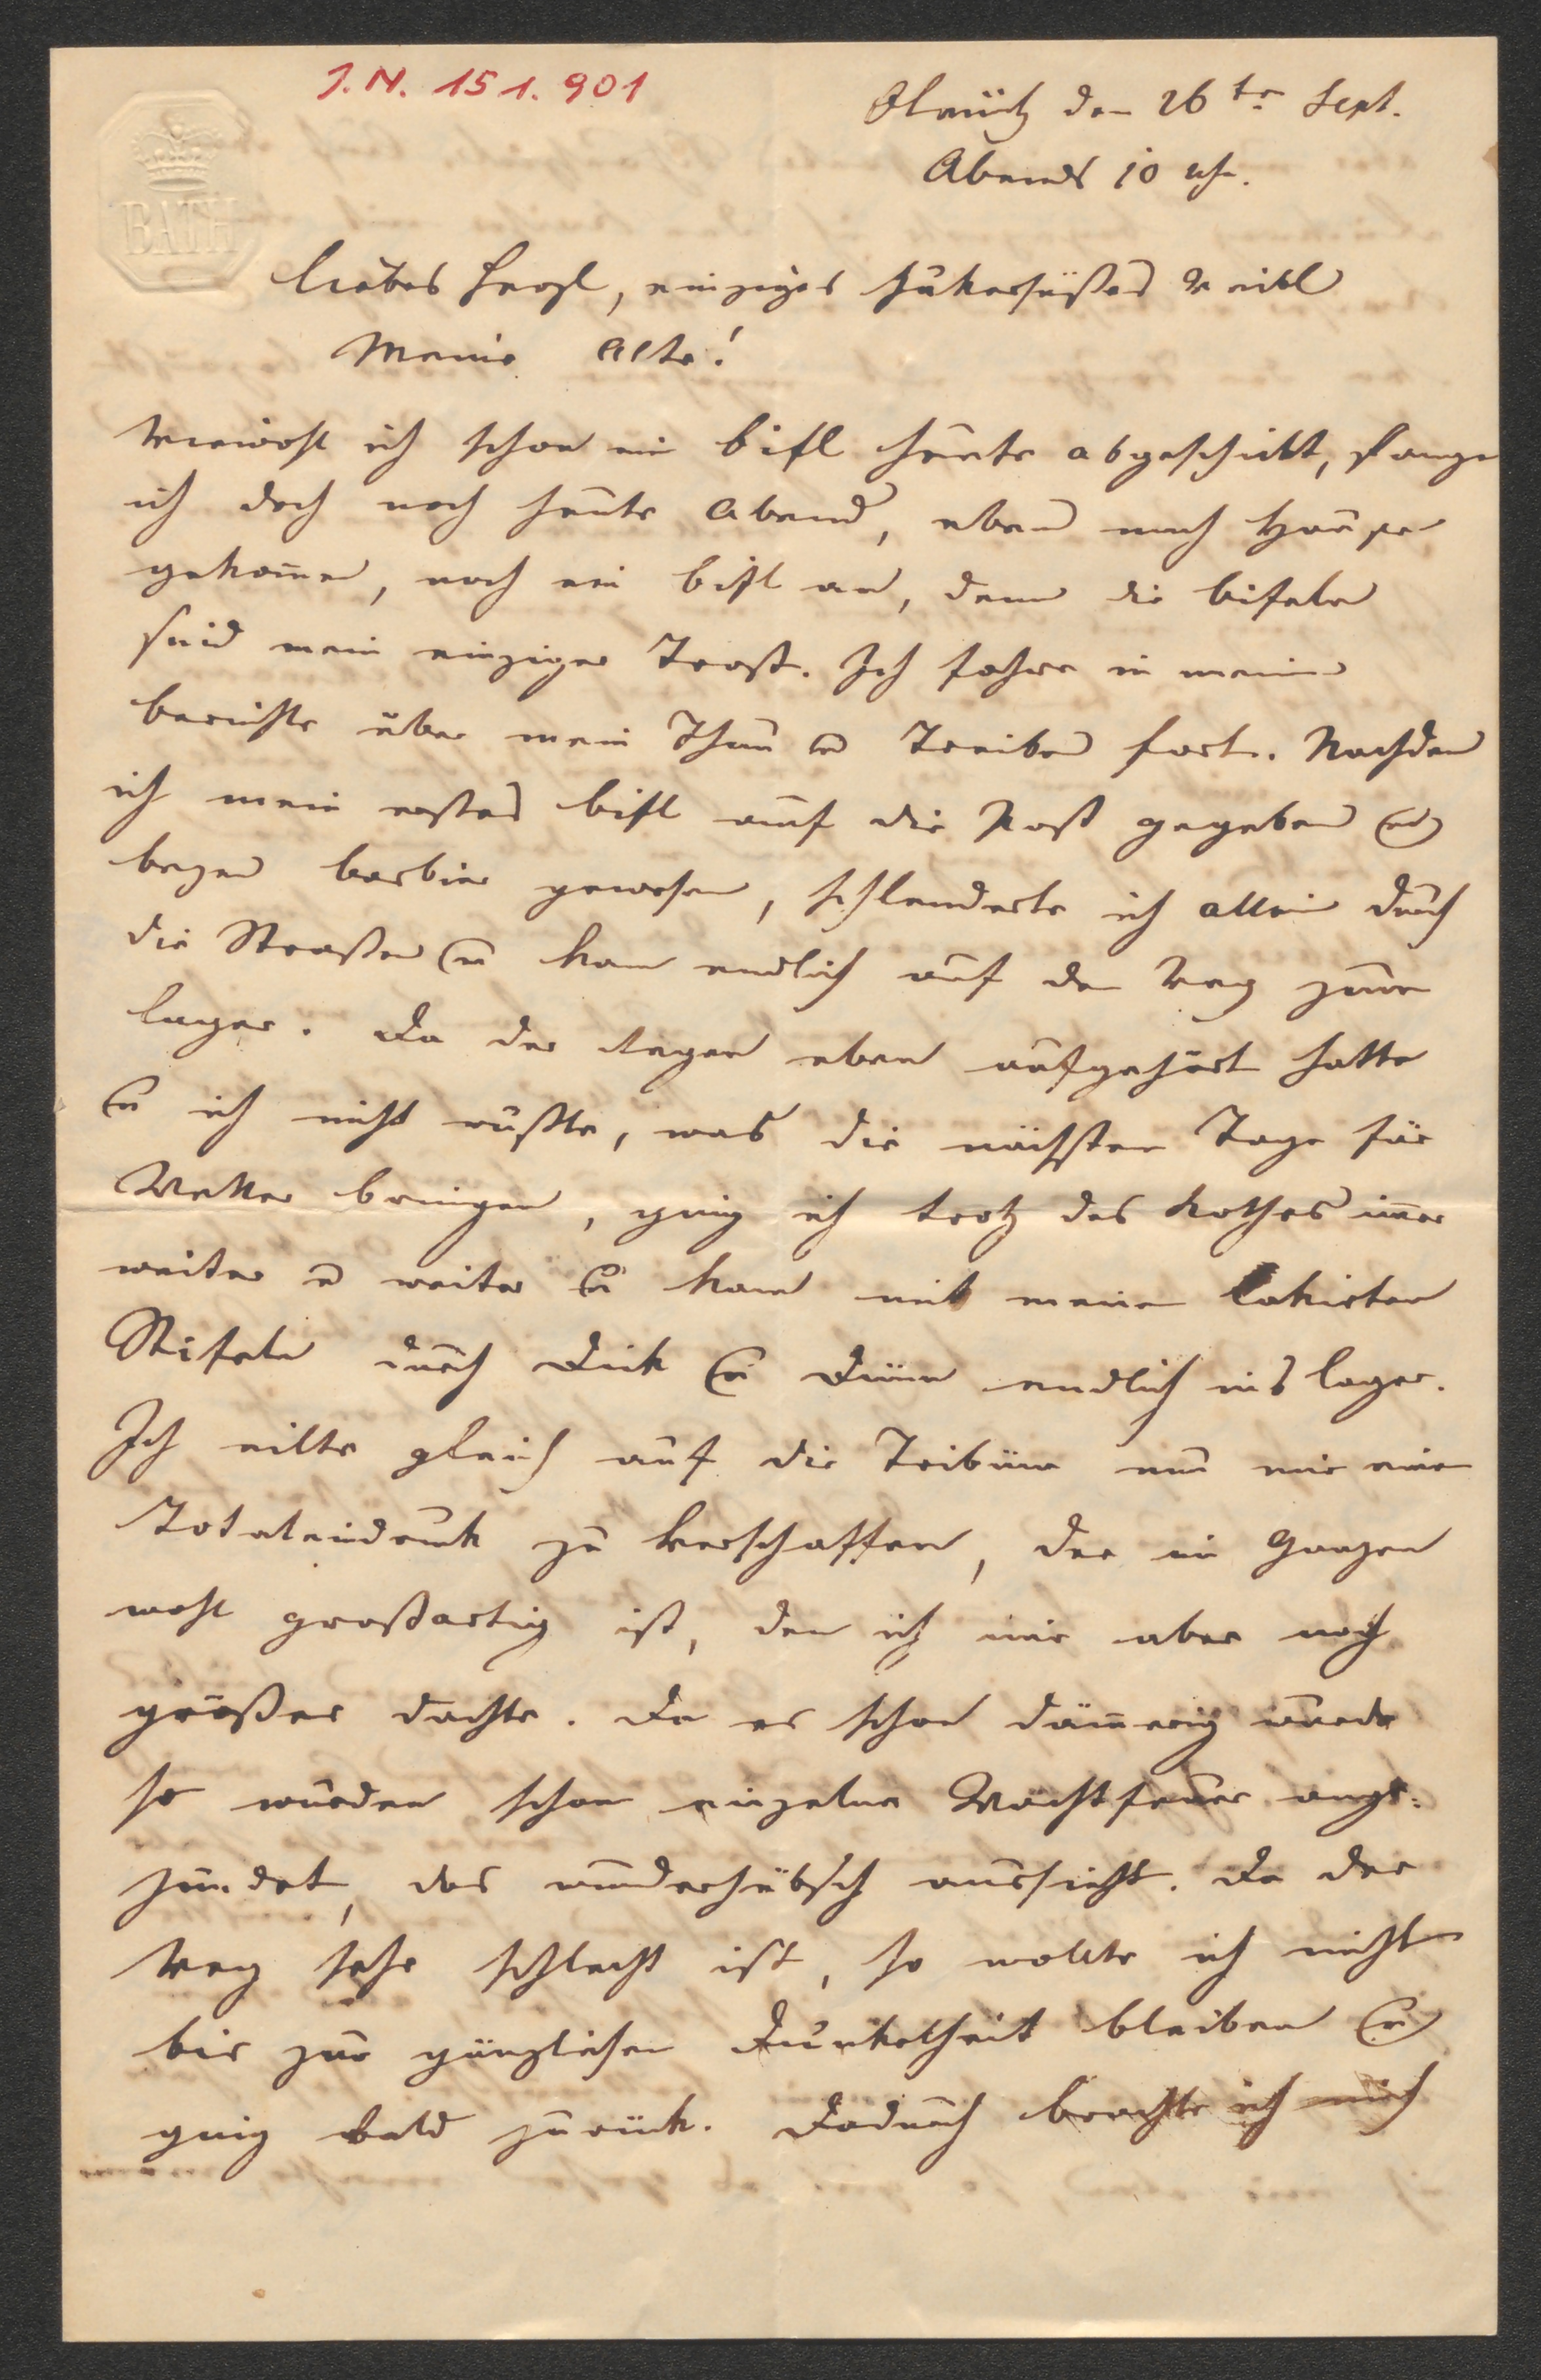 J.N. 151.901
BATH
Olmütz den 26te Sept.
Abends 10 Uhr.
Liebes Herzl, einziges zukersüßes Weibl
Meine Alte!
Wiewohl ich schon ein Bifl heute abgeschickt, fange
ich doch noch heute Abend, eben nach Hause
gekom̅en, noch ein Bifl an, denn die Bifeln
sind mein einziger Trost. Ich fahre in meinem
Berichte über mein Thun u Treiben fort. Nachdem
ich mein erstes Bifl auf die Post gegeben u
beym Barbier gewesen, schlenderte ich allein durch
die Straßen u kam endlich auf den Weg zum
Lager. Da der Regen eben aufgehört hatte
u ich nicht wußte, was die nächsten Tage für
Wetter bringen, ging ich trotz des Kothes im̅er
weiter u weiter u kam mit meinen lakirten
Stifeln durch Dick u Dün̅ endlich ins Lager.
Ich eilte gleich auf die Tribüne um mir einen
Totaleindruck zu verschaffen, der im Ganzen
wohl großartig ist, den ich mir aber noch
größer dachte. Da es schon däm̅erig wurde
so wurden schon einzelne Wachtfeuer ange-
zündet, das wunderhübsch aussieht. Da der
Weg sehr schlecht ist, so wollte ich nicht
bis zur gänzlichen Dunkelheit bleiben u
ging bald zurück. Dadurch brachte ich mich